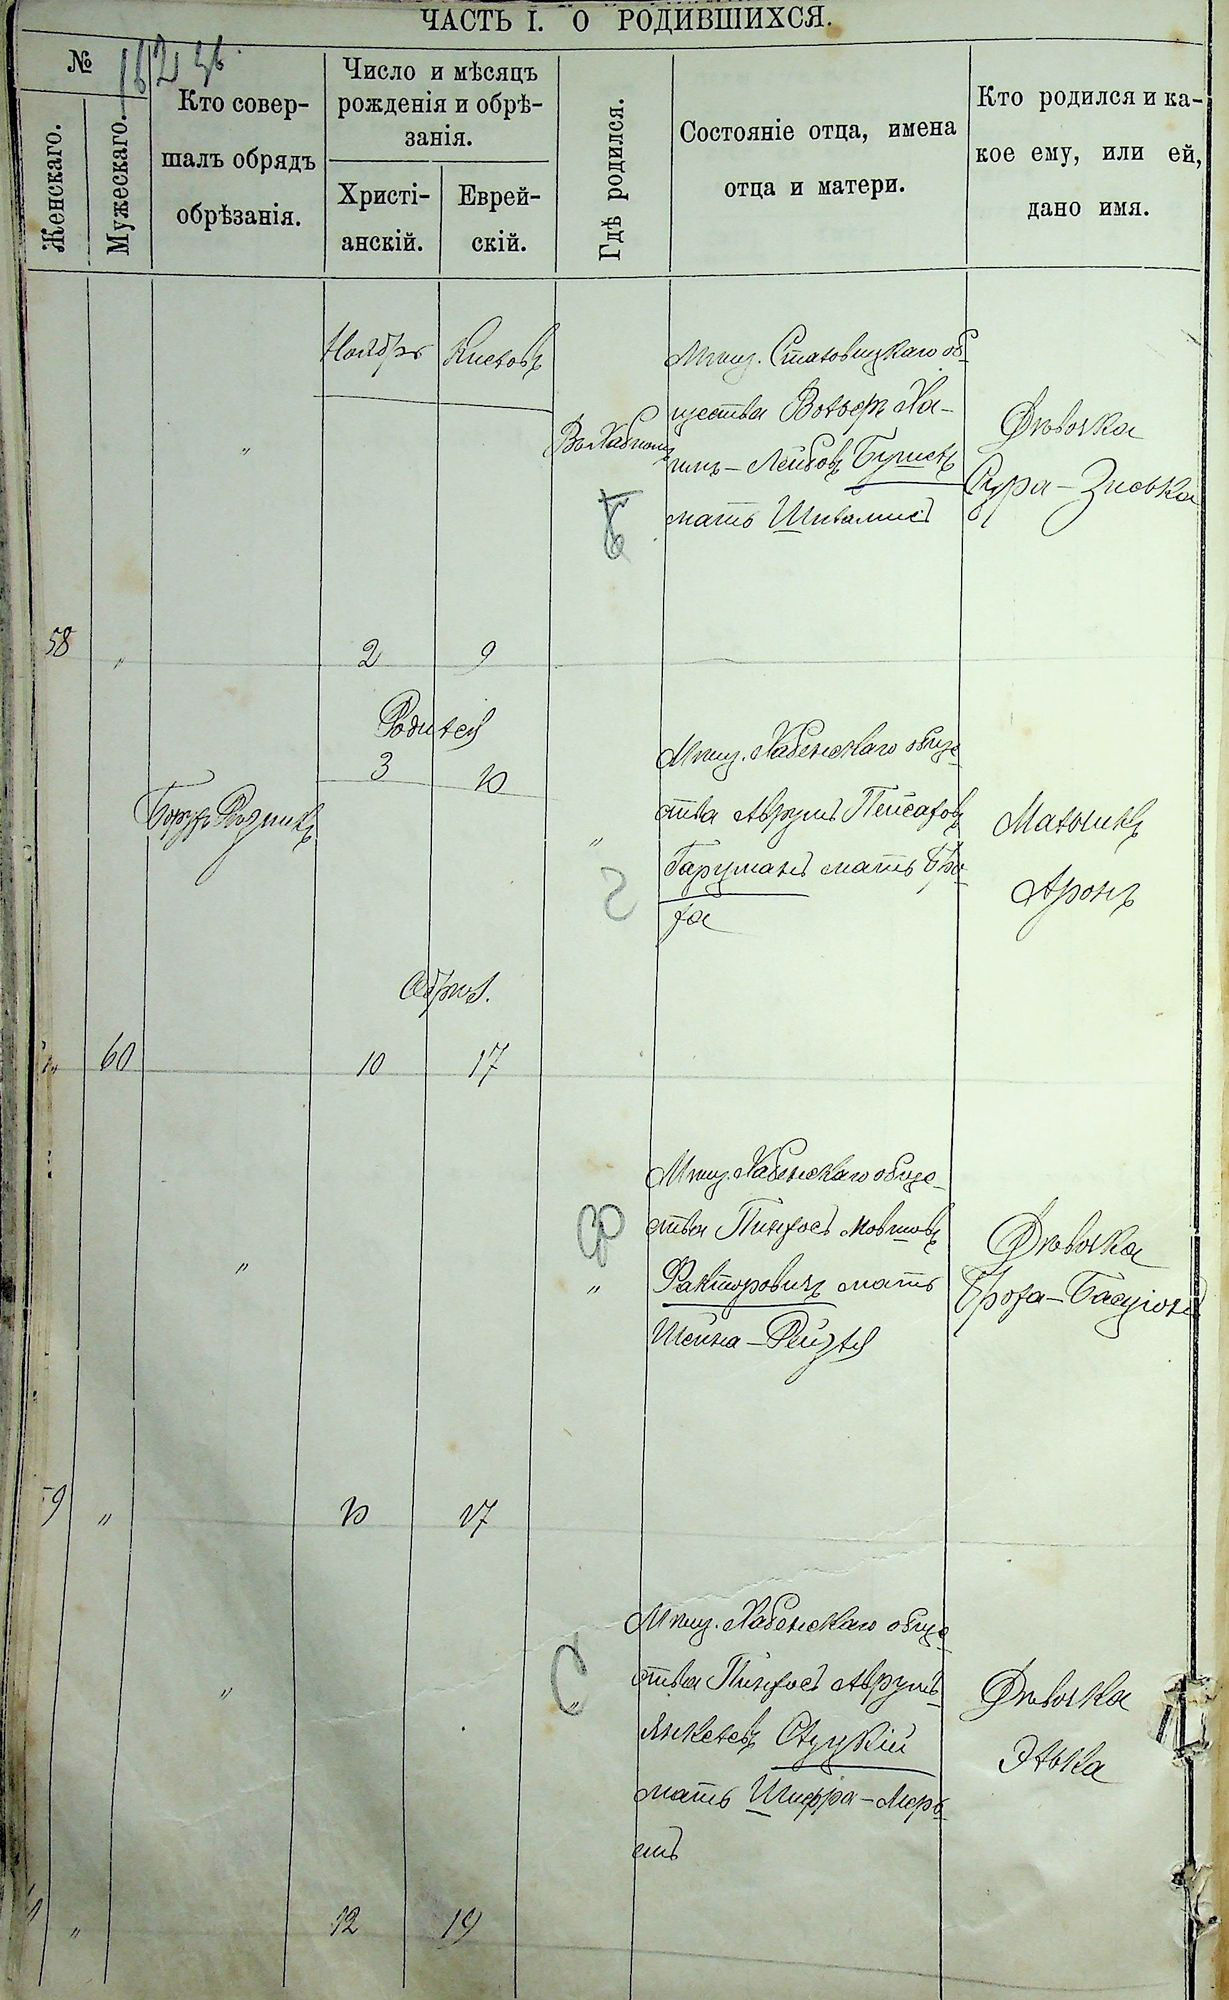 ЧАСТЬ I. О РОДИВШИХСЯ.
№
Женскаго.
Мужескаго.
Кто совер-
шалъ обрядъ
обрѣзанія.
Число и мѣсяцъ
рожденія и обрѣ-
занія.
Христі-
анскій.
Еврей-
скій.
Гдѣ родился.
Состояніе отца, имена
отца и матери.
Кто родился и ка-
кое ему, или ей,
дано имя.
Ноябрь
Кислевъ
Мѣщ. общества Вольфъ Ха-
имъ-Лейбовъ
мать
Дѣвочка
Сура-Зиська
58
"
"
2
9
Родился
3
10
Борухъ Резникъ
"
Мѣщ. Хабенскаго обще-
ства Аврумъ Пейсаховъ
мать Бро-
ха
Мальчикъ
Аронъ
Обрѣз.
"
60
10
17
"
"
Мѣщ. Хабенскаго обще-
ства Пинхосъ Мовшовъ
Факторовичъ мать
Шейна-Рейзля
Дѣвочка
Броха-
59
"
10
17
"
"
Мѣщ. Хабенскаго обще-
ства Пинхосъ Аврумъ-
Янкелевъ Слуцкій
мать Шифра-Мерь-
емъ
Дѣвочка
Элька
"
12
19